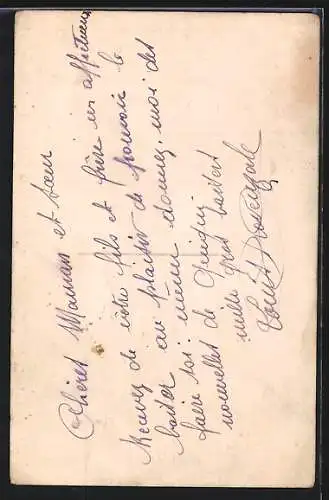 Chères Maman et sœur
Recevez de votre fils et frère un affectueux
baiser au plaisir de pouvoir le
faire ici même donnez, moi des
nouvelles de
mille gros baisers
Louis